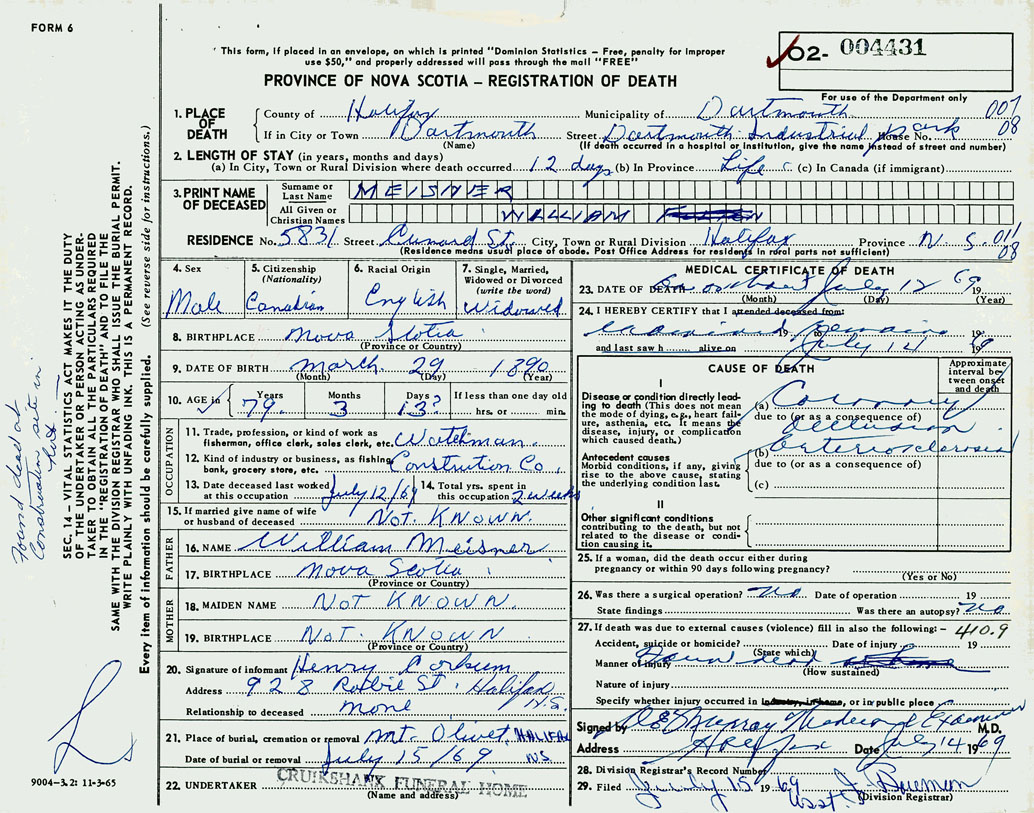 FORM 6
O2- 004431
' This form, if placed in an envelope, on which is printed "Dominion Statistics – Free, penalty for improper
use $50," and properly addressed will pass through the mail "FREE"
PROVINCE OF NOVA SCOTIA – REGISTRATION OF DEATH
For use of the Department only
1. PLACE OF DEATH County of Halifax Municipality of Dartmouth 007
If in City or Town Dartmouth Street Dartmouth Industrial House No. Park 08
(Name) (If death occurred in a hospital or institution, give the name instead of street and number)
2. LENGTH OF STAY (in years, months and days)
(a) In City, Town or Rural Division where death occurred 12 days (b) In Province Life (c) In Canada (if immigrant)
3. PRINT NAME OF DECEASED Surname or Last Name MEISNER
All Given or Christian Names WILLIAM
RESIDENCE No. 5831 Street Cunard St. City, Town or Rural Division Halifax Province N.S. 011
(Residence means usual place of abode. Post Office Address for residents in rural parts not sufficient) 08
4. Sex Male
5. Citizenship (Nationality) Canadian
6. Racial Origin English
7. Single, Married, Widowed or Divorced (write the word) Widowed
8. BIRTHPLACE Nova Scotia
(Province or Country)
9. DATE OF BIRTH March 29 1890
(Month) (Day) (Year)
10. AGE in Years 79 Months 3 Days 13? If less than one day old hrs. or min.
OCCUPATION
11. Trade, profession or kind of work as
fisherman, office clerk, sales clerk, etc. Watchman.
12. Kind of industry or business, as fishing
bank, grocery store, etc. Constrution Co.
13. Date deceased last worked at this occupation July 12/69
14. Total yrs. spent in this occupation 2 weeks
15. If married give name of wife
or husband of deceased NOT KNOWN.
FATHER
16. NAME William Meisner
17. BIRTHPLACE Nova Scotia
(Province or Country)
MOTHER
18. MAIDEN NAME NOT KNOWN.
19. BIRTHPLACE NOT KNOWN.
(Province or Country)
20. Signature of informant Henry Corkum
Address 928 Robie St. Halifax N.S.
Relationship to deceased none
21. Place of burial, cremation or removal Mt Olivet, HALIFAX
Date of burial or removal July 15/69 N.S.
22. UNDERTAKER CRUIKSHANK FUNERAL HOME
(Name and address)
MEDICAL CERTIFICATE OF DEATH
23. DATE OF DEATH On or about July 12 1969
(Month) (Day) (Year)
24. I HEREBY CERTIFY that I attended deceased from:
examined 19 remains 19
and last saw h alive on July 14 19
CAUSE OF DEATH
Approximate interval between onset and death
I
Disease or condition directly leading to death (This does not
mean the mode of dying, e.g., heart failure, asthenia, etc. It means the
disease, injury, or complication which caused death.)
(a) Coronary
due to (or as a consequence of)
occlusion
Antecedent causes
Morbid conditions, if any, giving rise to the above cause, stating
the underlying condition last.
(b) arteriosclerosis
due to (or as a consequence of)
(c)
II
Other significant conditions
contributing to the death, but not related to the disease or condition causing it.
25. If a woman, did the death occur either during
pregnancy or within 90 days following pregnancy?
(Yes or No)
26. Was there a surgical operation? no Date of operation 19
State findings Was there an autopsy? no
27. If death was due to external causes (violence) fill in also the following: – 410.9
Accident, suicide or homicide? Date of injury 19
(State which)
Manner of injury Found dead
(How sustained)
Nature of injury
Specify whether injury occurred in industry, in home, or in public place
Signed by Murray Medical Examiner M.D.
Address Halifax Date July 14 1969
28. Division Registrar's Record Number
29. Filed July 15 1969 Asst.
(Division Registrar)
Found dead at
Construction site in
hut
SEC. 14 – VITAL STATISTICS ACT MAKES IT THE DUTY
OF THE UNDERTAKER OR PERSON ACTING AS UNDER-
TAKER TO OBTAIN ALL THE PARTICULARS REQUIRED
IN THE "REGISTRATION OF DEATH" AND TO FILE THE
SAME WITH THE DIVISION REGISTRAR WHO SHALL ISSUE THE BURIAL PERMIT.
WRITE PLAINLY WITH UNFADING INK. THIS IS A PERMANENT RECORD.
Every item of information should be carefully supplied. (See reverse side for instructions.)
9004–3.2: 11-3-65